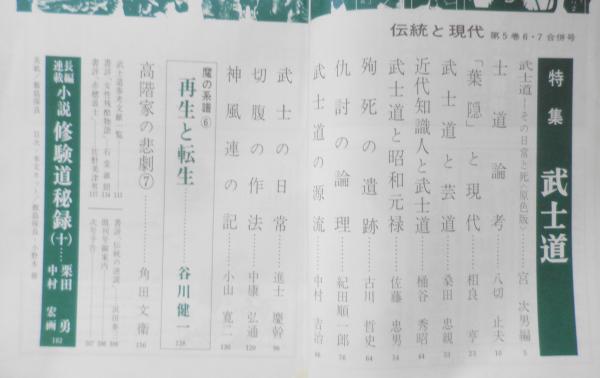 伝統と現代 第5巻6・7合併号
特集 武士道
武士道―その日常と死〈原色版〉……宮 次男編 5
士道論考……八切 止夫 10
「葉隠」と現代……相良 亨 23
武士道と芸道……桑田 忠親
近代知識人と武士道……桶谷 秀昭 44
武士道と昭和元禄……佐藤 忠男 54
殉死の遺跡……古川 哲史 64
仇討の論理……紀田順一郎 76
武士道の源流……中村 吉治
武士の日常……進士 慶幹 96
切腹の作法……中康 弘通 120
神風連の記……小山 寛二 130
魔の系譜⑥
再生と転生……谷川健一 138
高階家の悲劇⑦……角田 文衛 150
武士道参考文献一覧……113
書評、女性残酷物語……石堂 淑朗
書評、赤穂浪士……佐野美津男 137
書評、伝統の逆説……浜田泰三
既刊号御案内
次号予告
長編連載小説 修験道秘録(十)……栗田 勇
中村 宏画 182
表紙/飯島保良
目次・本文カット/飯島保良/小野木 修